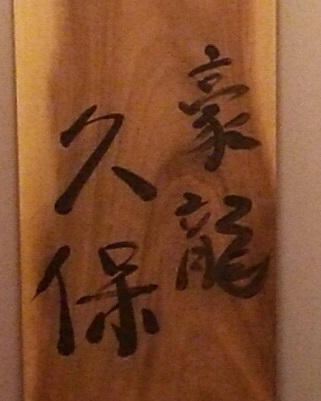 豪龍
久保